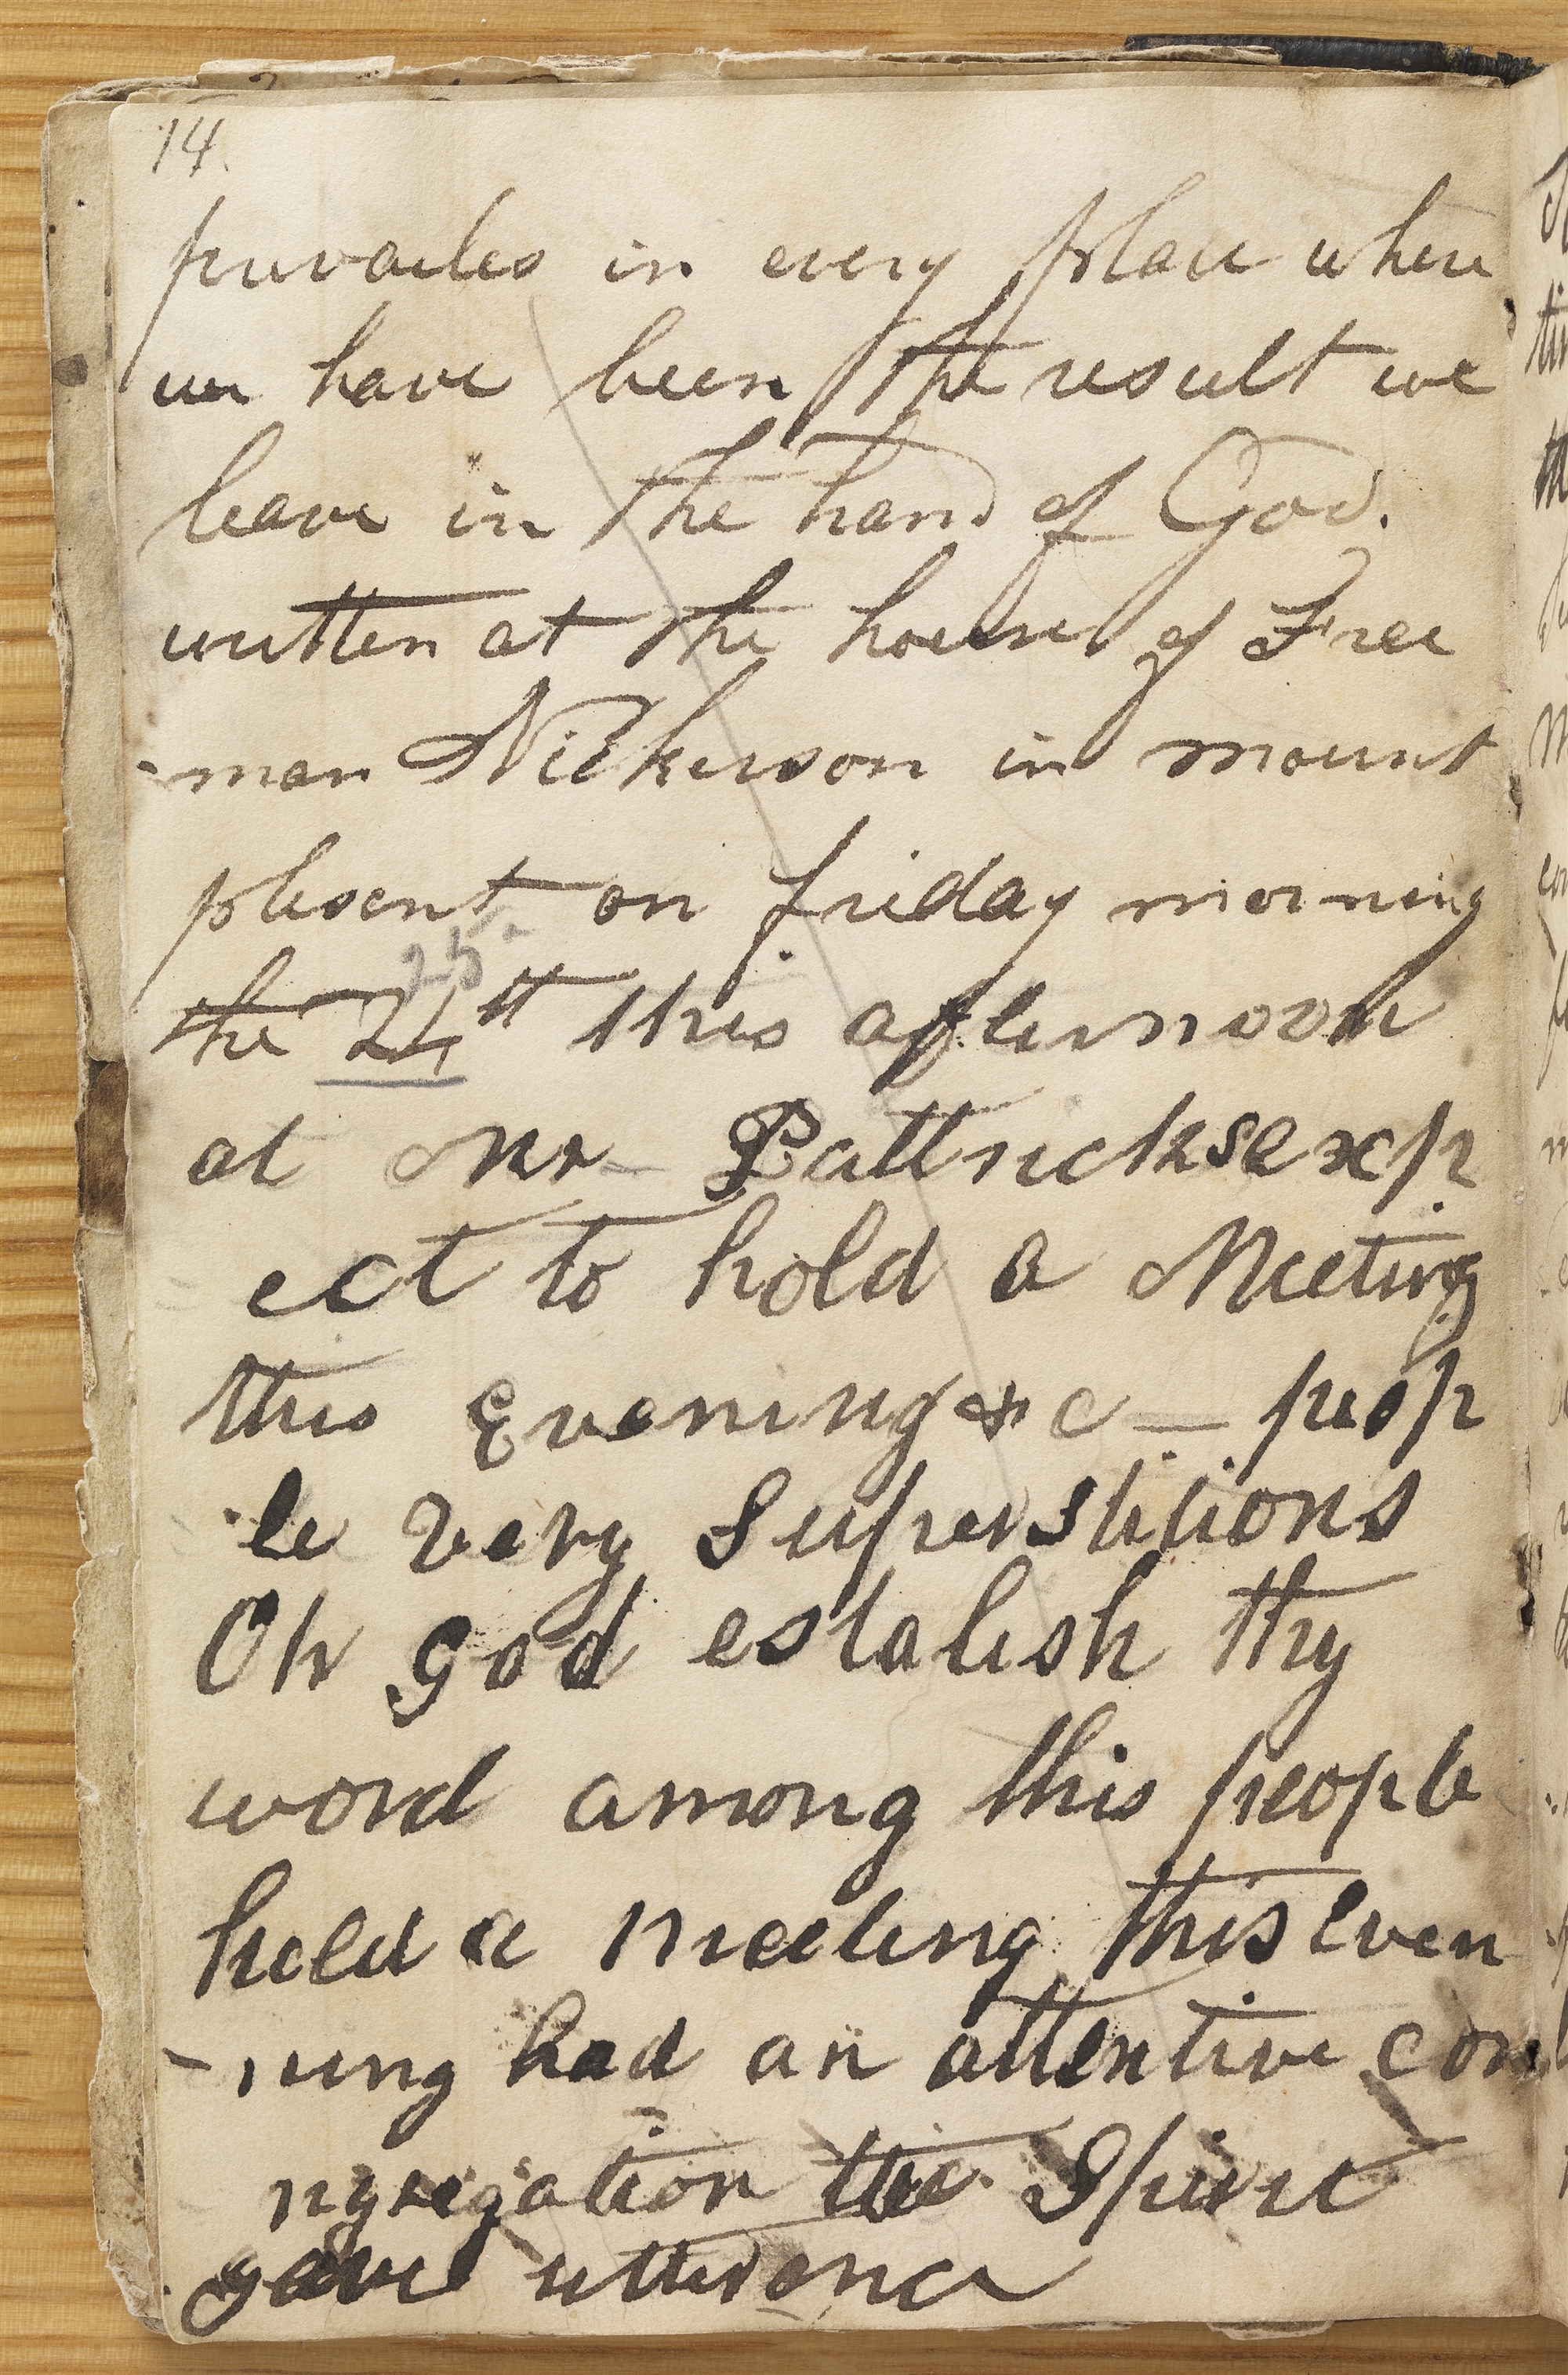 14.
prevailes in every place where
we have been the result we
leave in the hand of God.
written at the house of Free
-man Nickerson in mount
plesent on friday morning
25
the 24th this afternoon
at Mr Pattricks exp
ect to hold a Meeting
this Evening &c — peop
le very superstitious
Oh god establish thy
word among this people
held a meeting this even
-ning had an attentive con
ngregation the Spirit
gave utterance